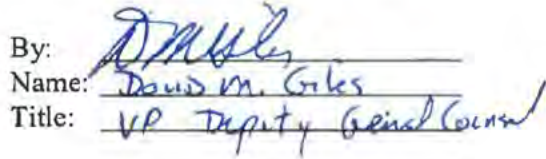 By:
Name: David M. Giles
Title: VP Deputy General Counsel